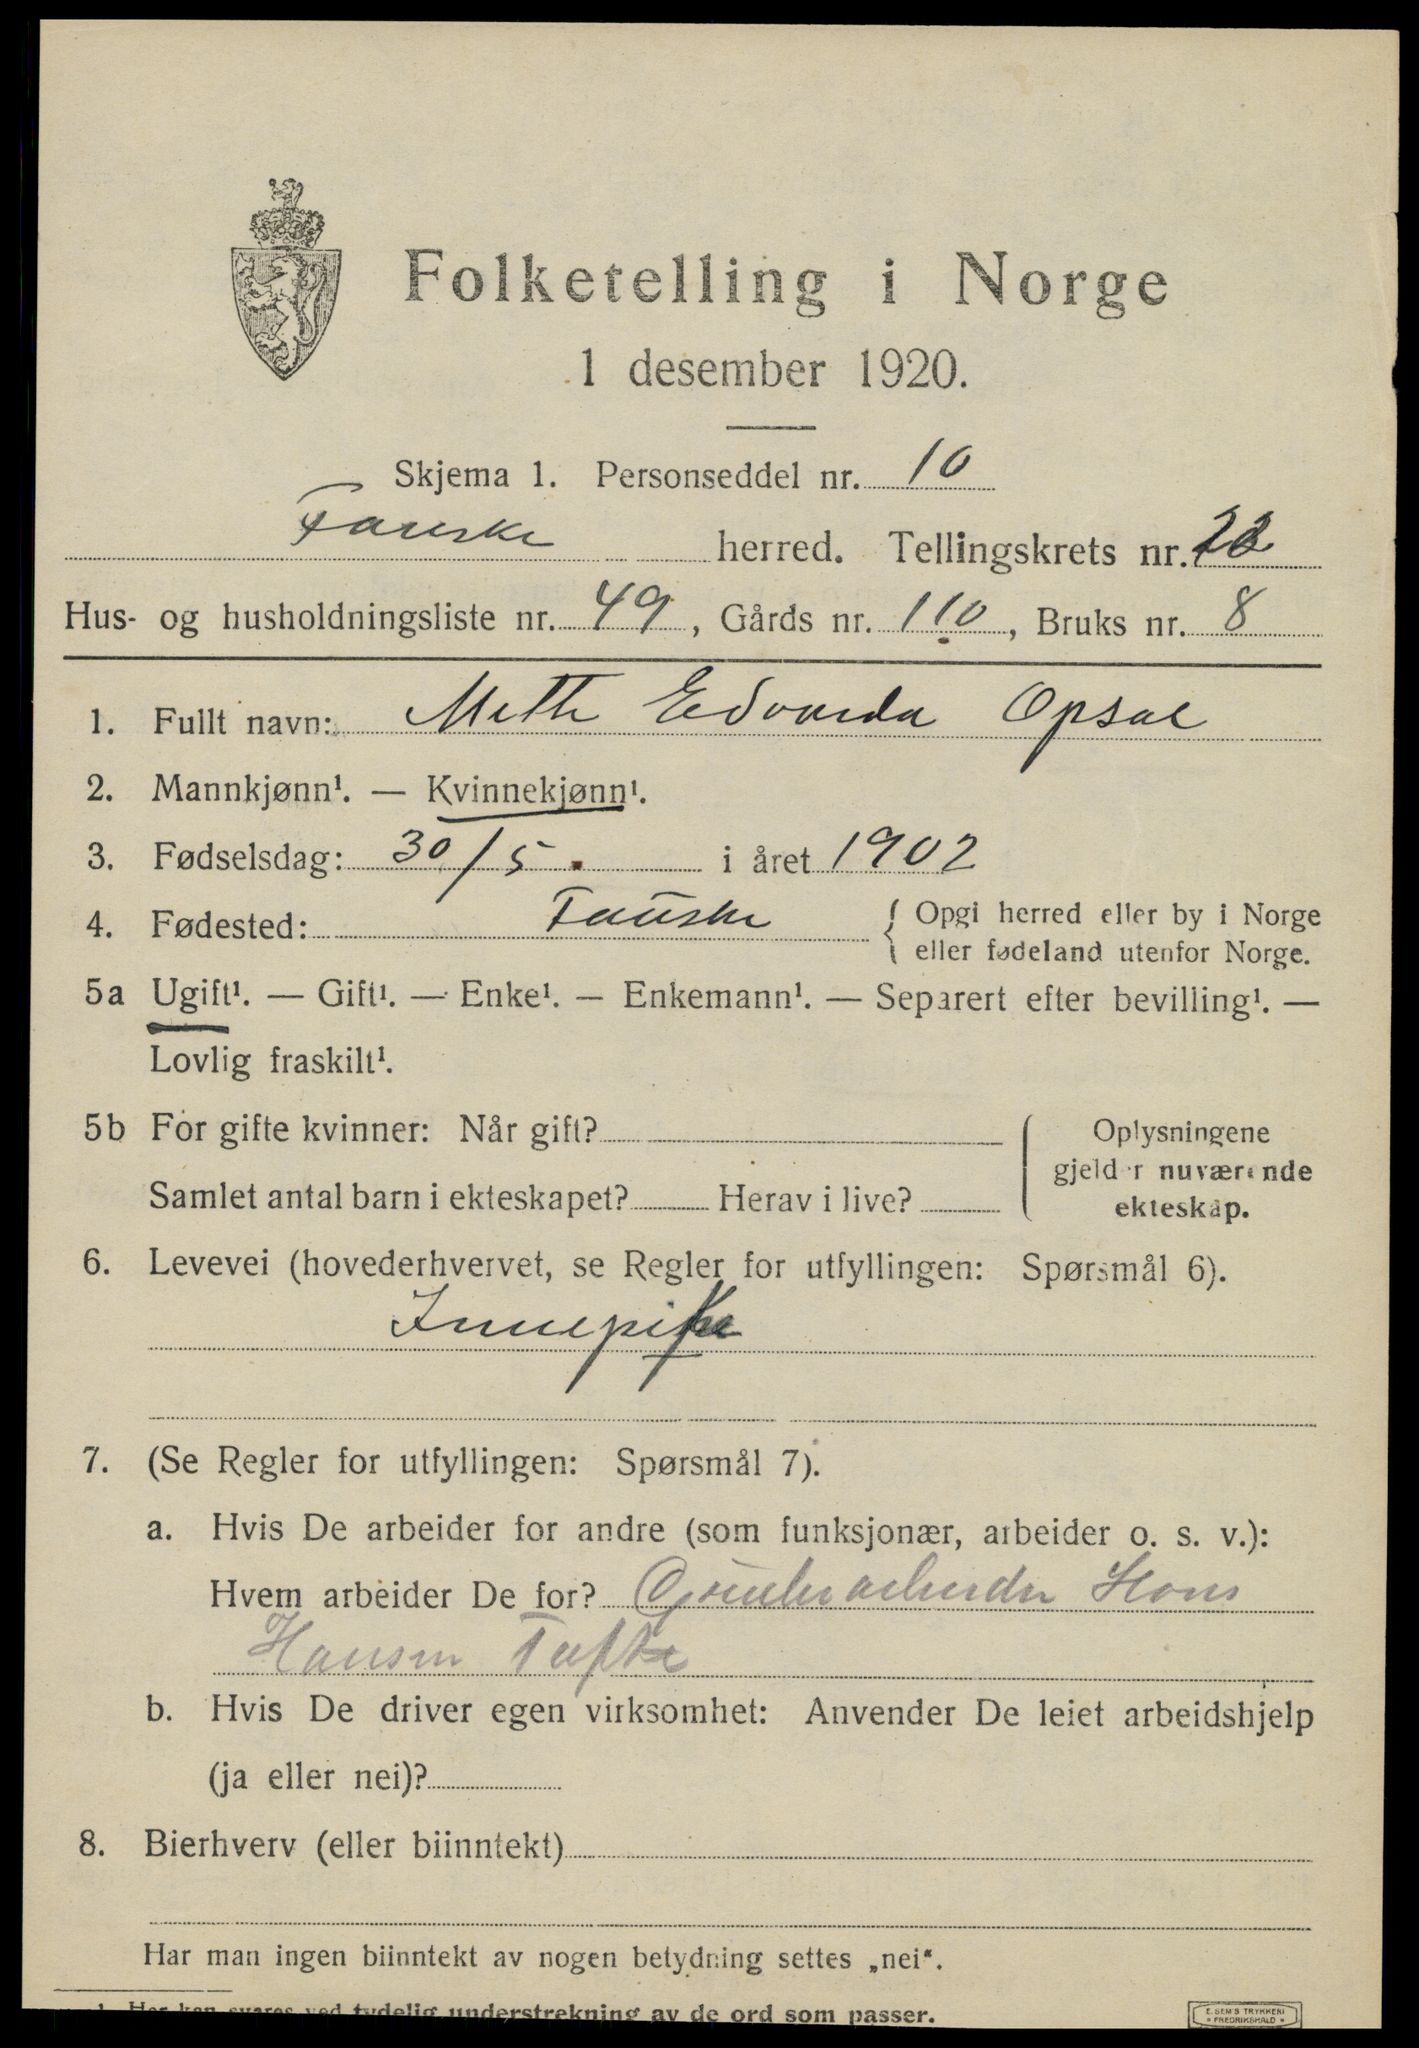 Folketelling i Norge
1 desember 1920.
Skjema 1. Personseddel nr. 10
Fauske herred. Tellingskrets nr.
Hus- og husholdningsliste nr. 49, Gårds nr. 110, Bruks nr. 8
1. Fullt navn: Mette Edvarda Opsal
2. Mannkjønn¹. — Kvinnekjønn¹.
3. Fødselsdag: 30/5. i året 1902
4. Fødested: Fauske { Opgi herred eller by i Norge
eller fødeland utenfor Norge.
5a Ugift¹. — Gift¹. — Enke¹. — Enkemann¹. — Separert efter bevilling¹. —
Lovlig fraskilt¹.
5b For gifte kvinner: Når gift?
Samlet antal barn i ekteskapet? Herav i live?
Oplysningene
gjelder nuværende
ekteskap.
6. Levevei (hovederhvervet, se Regler for utfyllingen: Spørsmål 6).
Innepike
7. (Se Regler for utfyllingen: Spørsmål 7).
a. Hvis De arbeider for andre (som funksjonær, arbeider o. s. v.):
Hvem arbeider De for? Grubearbeider Hans
Hansen Tufte
b. Hvis De driver egen virksomhet: Anvender De leiet arbeidshjelp
(ja eller nei)?
8. Bierhverv (eller biinntekt)
Har man ingen biinntekt av nogen betydning settes „nei“.
1 Her kan svares ved tydelig understrekning av de ord som passer.
E. SEM'S TRYKKERI
• FREDRIKSHALD •